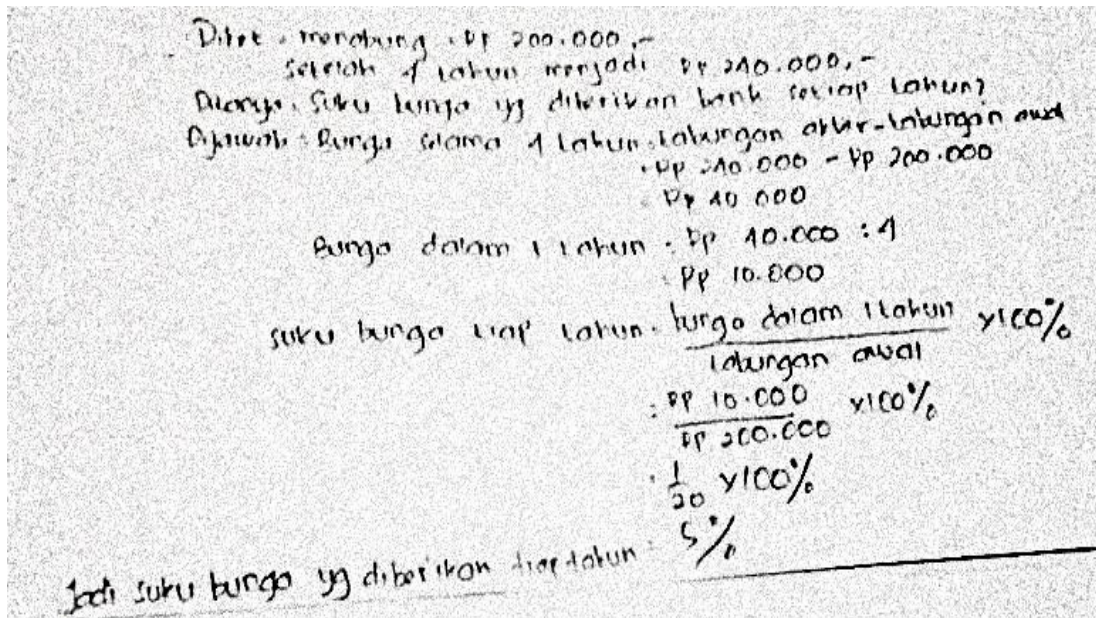 Diket : menabung : Rp 200.000,-
setelah 4 tahun menjadi Rp 240.000,-
Ditanya : Suku bunga yg diberikan bank setiap tahun?
Dijawab : Bunga selama 4 tahun = tabungan akhir - tabungan awal
= Rp 240.000 - Rp 200.000
= Rp 40.000
Bunga dalam 1 tahun = Rp 40.000 : 4
= Rp 10.000
suku bunga tiap tahun = bunga dalam 1 tahun x 100%
tabungan awal
= Rp 10.000 x 100%
Rp 200.000
= 1/20 x 100%
Jadi suku bunga yg diberikan tiap tahun = 5%